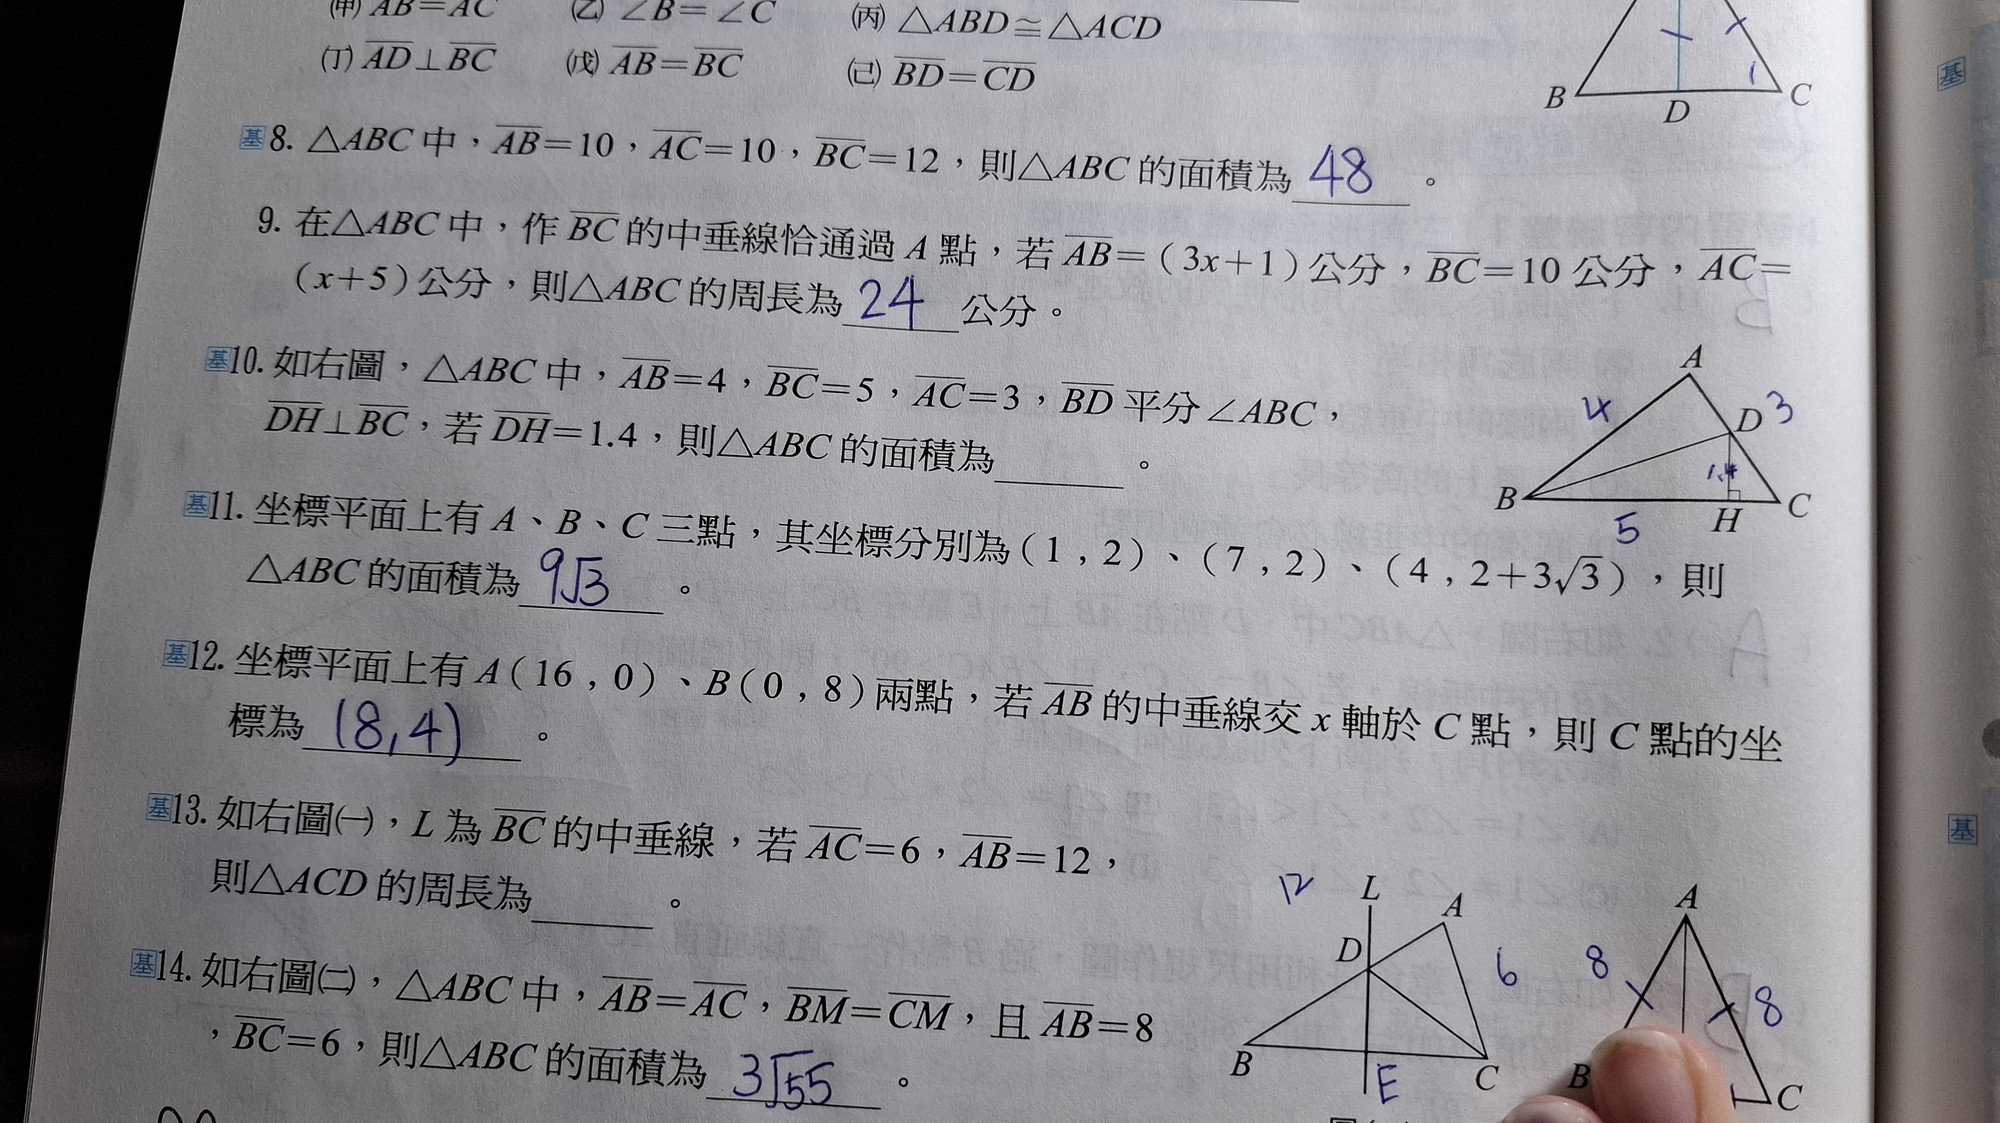 (甲) AB=AC (乙) ∠B=∠C (丙) △ABD≅△ACD
(丁) AD⊥BC (戊) AB=BC (己) BD=CD
B D C 1
基 8. △ABC 中，AB=10，AC=10，BC=12，則△ABC 的面積為 48 。
9. 在△ABC 中，作 BC 的中垂線恰通過 A 點，若 AB=(3x+1)公分，BC=10 公分，AC=
(x+5)公分，則△ABC 的周長為 24 公分。
基 10. 如右圖，△ABC 中，AB=4，BC=5，AC=3，BD 平分∠ABC，
DH⊥BC，若 DH=1.4，則△ABC 的面積為 。
A 4 D 3 1.4 B 5 H C
基 11. 坐標平面上有 A、B、C 三點，其坐標分別為(1，2)、(7，2)、(4，2+3√3)，則
△ABC 的面積為 9√3 。
基 12. 坐標平面上有 A(16，0)、B(0，8)兩點，若 AB 的中垂線交 x 軸於 C 點，則 C 點的坐
標為 (8,4) 。
基 13. 如右圖㈠，L 為 BC 的中垂線，若 AC=6，AB=12，
則△ACD 的周長為 。
12 L A D 6 B E C
基 14. 如右圖㈡，△ABC 中，AB=AC，BM=CM，且 AB=8
，BC=6，則△ABC 的面積為 3√55 。
A 8 8 B C
基
基